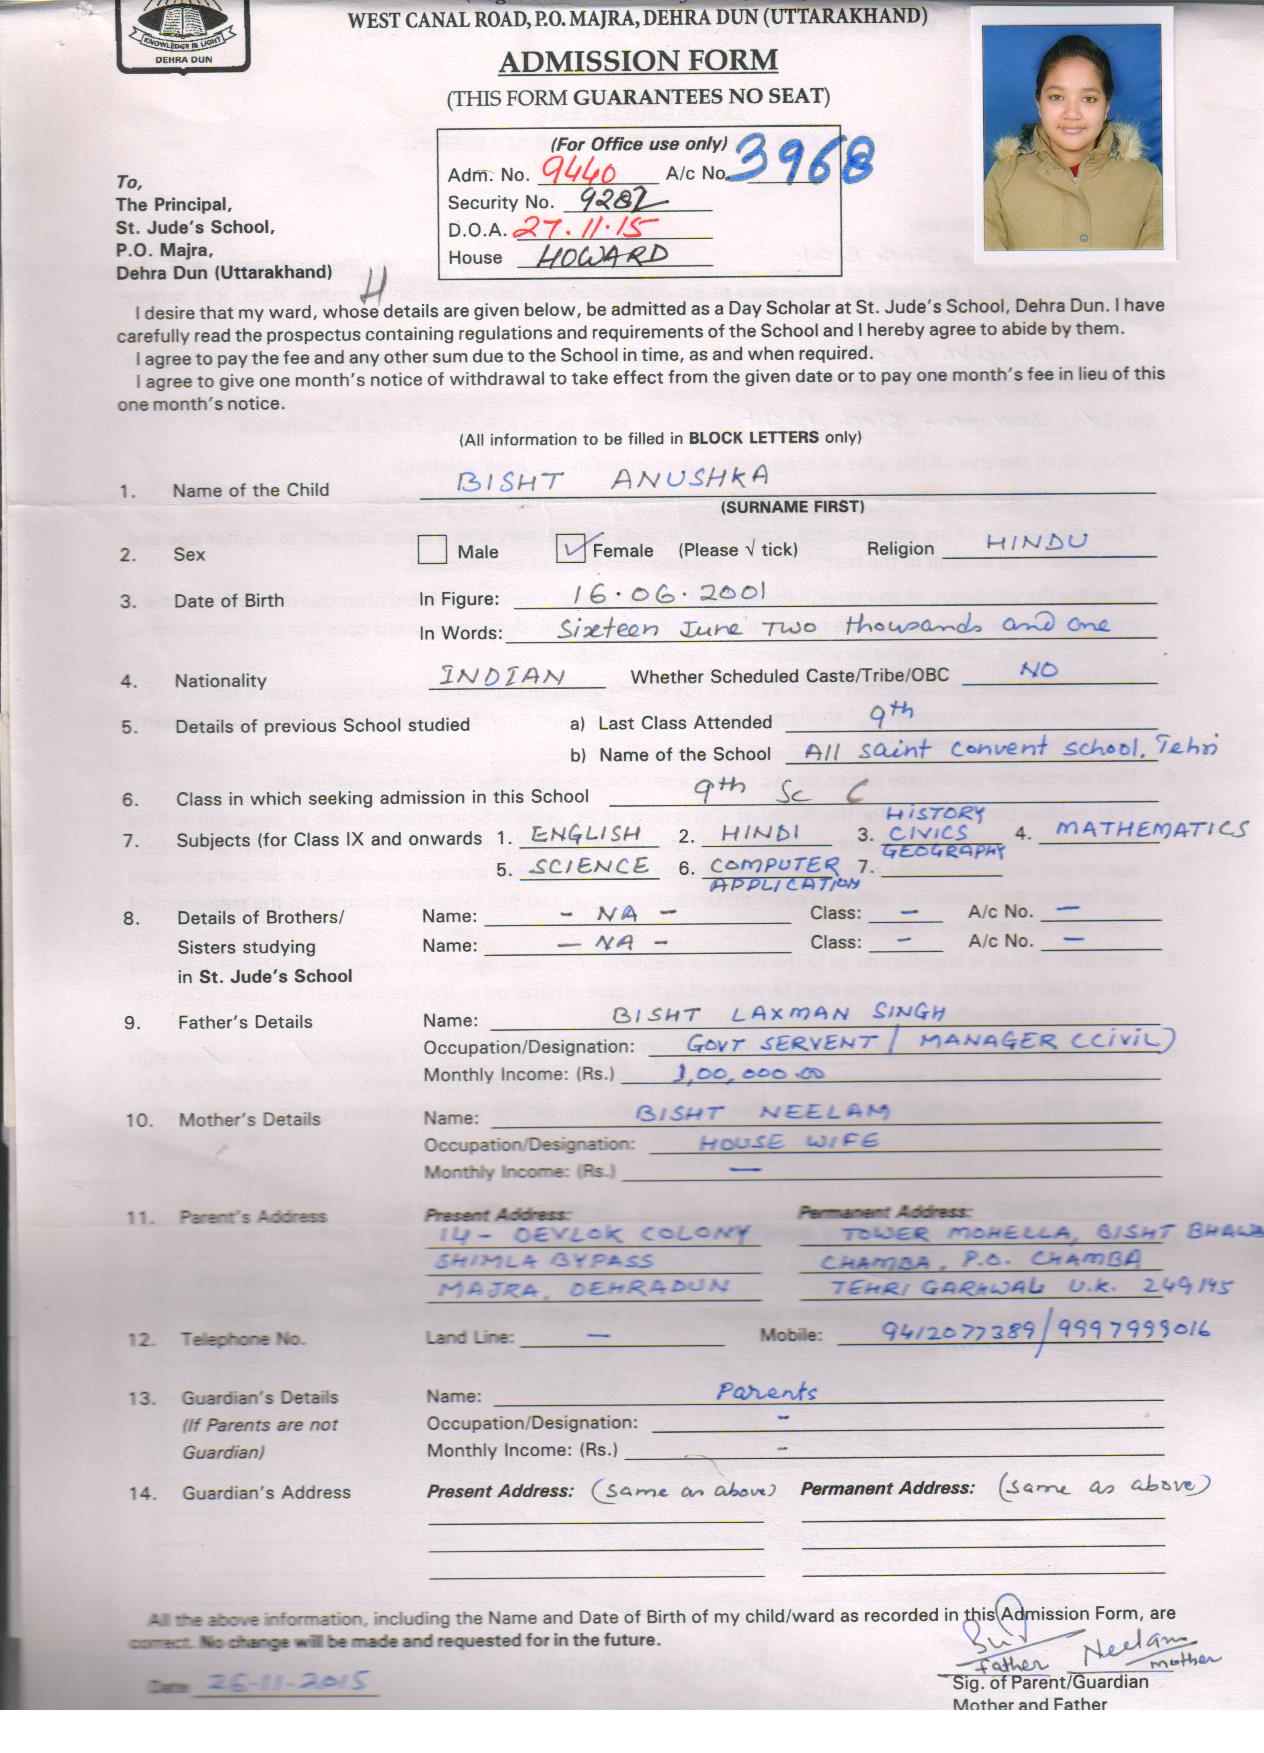 KNOWLEDGE IS LIGHT
DEHRA DUN
WEST CANAL ROAD, P.O. MAJRA, DEHRA DUN (UTTARAKHAND)
ADMISSION FORM
(THIS FORM GUARANTEES NO SEAT)
(For Office use only)
Adm. No. 9440 A/c No. 3968
Security No. 9287
D.O.A. 27.11.15
House HOWARD
To,
The Principal,
St. Jude's School,
P.O. Majra,
Dehra Dun (Uttarakhand)
I desire that my ward, whose details are given below, be admitted as a Day Scholar at St. Jude's School, Dehra Dun. I have
carefully read the prospectus containing regulations and requirements of the School and I hereby agree to abide by them.
I agree to pay the fee and any other sum due to the School in time, as and when required.
I agree to give one month's notice of withdrawal to take effect from the given date or to pay one month's fee in lieu of this
one month's notice.
(All information to be filled in BLOCK LETTERS only)
1. Name of the Child BISHT ANUSHKA
(SURNAME FIRST)
2. Sex Male ✓ Female (Please √ tick) Religion HINDU
3. Date of Birth In Figure: 16.06.2001
In Words: Sixteen June Two thousands and one
4. Nationality INDIAN Whether Scheduled Caste/Tribe/OBC NO
5. Details of previous School studied a) Last Class Attended 9th
b) Name of the School All saint convent school, Tehri
6. Class in which seeking admission in this School 9th Sc C
7. Subjects (for Class IX and onwards 1. ENGLISH 2. HINDI 3. HISTORY CIVICS GEOGRAPHY 4. MATHEMATICS
5. SCIENCE 6. COMPUTER APPLICATION 7.
8. Details of Brothers/ Name: - NA - Class: - A/c No. -
Sisters studying Name: - NA - Class: - A/c No. -
in St. Jude's School
9. Father's Details Name: BISHT LAXMAN SINGH
Occupation/Designation: GOVT SERVENT / MANAGER (CIVIL)
Monthly Income: (Rs.) 1,00,000.00
10. Mother's Details Name: BISHT NEELAM
Occupation/Designation: HOUSE WIFE
Monthly Income: (Rs.) -
11. Parent's Address Present Address: Permanent Address:
14 - DEVLOK COLONY TOWER MOHELLA, BISHT
SHIMLA BYPASS CHAMBA, P.O. CHAMBA
MAJRA, DEHRADUN TEHRI GARHWAL U.K. 249145
12. Telephone No. Land Line: - Mobile: 9412077389/9997999016
13. Guardian's Details Name: Parents
(If Parents are not Occupation/Designation: -
Guardian) Monthly Income: (Rs.) -
14. Guardian's Address Present Address: (same as above) Permanent Address: (same as above)
All the above information, including the Name and Date of Birth of my child/ward as recorded in this Admission Form, are
correct. No change will be made and requested for in the future.
Neelam
father mother
Date 26-11-2015
Sig. of Parent/Guardian
Mother and Father